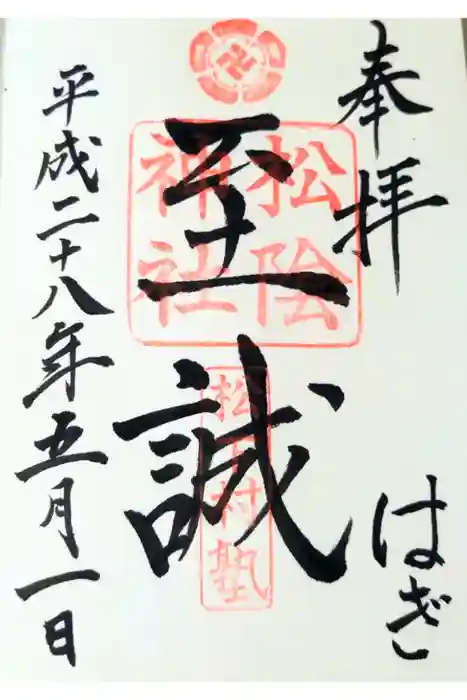 奉拝
はぎ
至誠
松陰
神社
松下村塾
平成二十八年五月一日